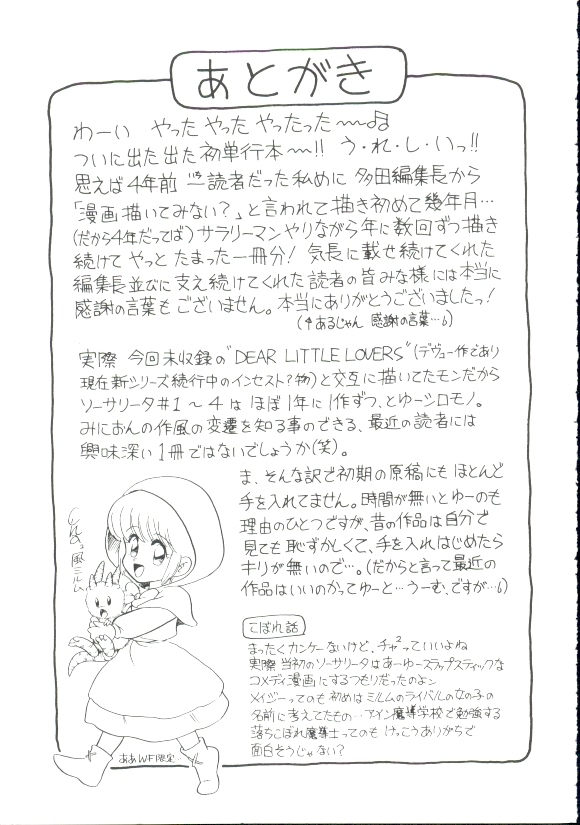 あとがき
わーい やった やった やったった〜〜♫
ついに出た出た初単行本〜!! う・れ・し・いっ!!
思えば4年前 一読者だった私めに 多田編集長から
「漫画描いてみない?」と言われて描き初めて幾年月…
(だから4年だってば) サラリーマンやりながら年に数回ずつ描き
続けて やっと たまった一冊分! 気長に載せ続けてくれた
編集長並びに支え続けてくれた読者の皆みな様には本当に
感謝の言葉もございません。本当にありがとうございましたっ!
(↑あるじゃん 感謝の言葉…6)
実際 今回未収録の"DEAR LITTLE LOVERS"(デヴュー作であり
現在新シリーズ続行中のインセスト?物)と交互に描いてたモンだから
ソーサリータ#1〜4は ほぼ1年に1作ずつ、とゆーシロモノ。
みにおんの作風の変遷を知る事のできる、最近の読者には
興味深い1冊ではないでしょうか(笑)。
ま、そんな訳で初期の原稿にも ほとんど
手を入れてません。時間が無いとゆーのも
理由のひとつですが、昔の作品は自分で
見ても恥ずかしくて、手を入れはじめたら
キリが無いので…。(だからと言って最近の
作品はいいのかってゆーと…うーむ、ですが…6)
風ミルム
こぼれ話
まったくカンケーないけど、チャ2っていいよね
実際 当初のソーサリータはあーゆースラップスティックな
コメディ漫画にするつもりだったのよン
メイジーってのも初めはミルムのライバルの女の子の
名前に考えてたもの…アイン魔導学校で勉強する
落ちこぼれ魔導士ってのも けっこうありからで
面白そうじゃない?
ああWF限定…